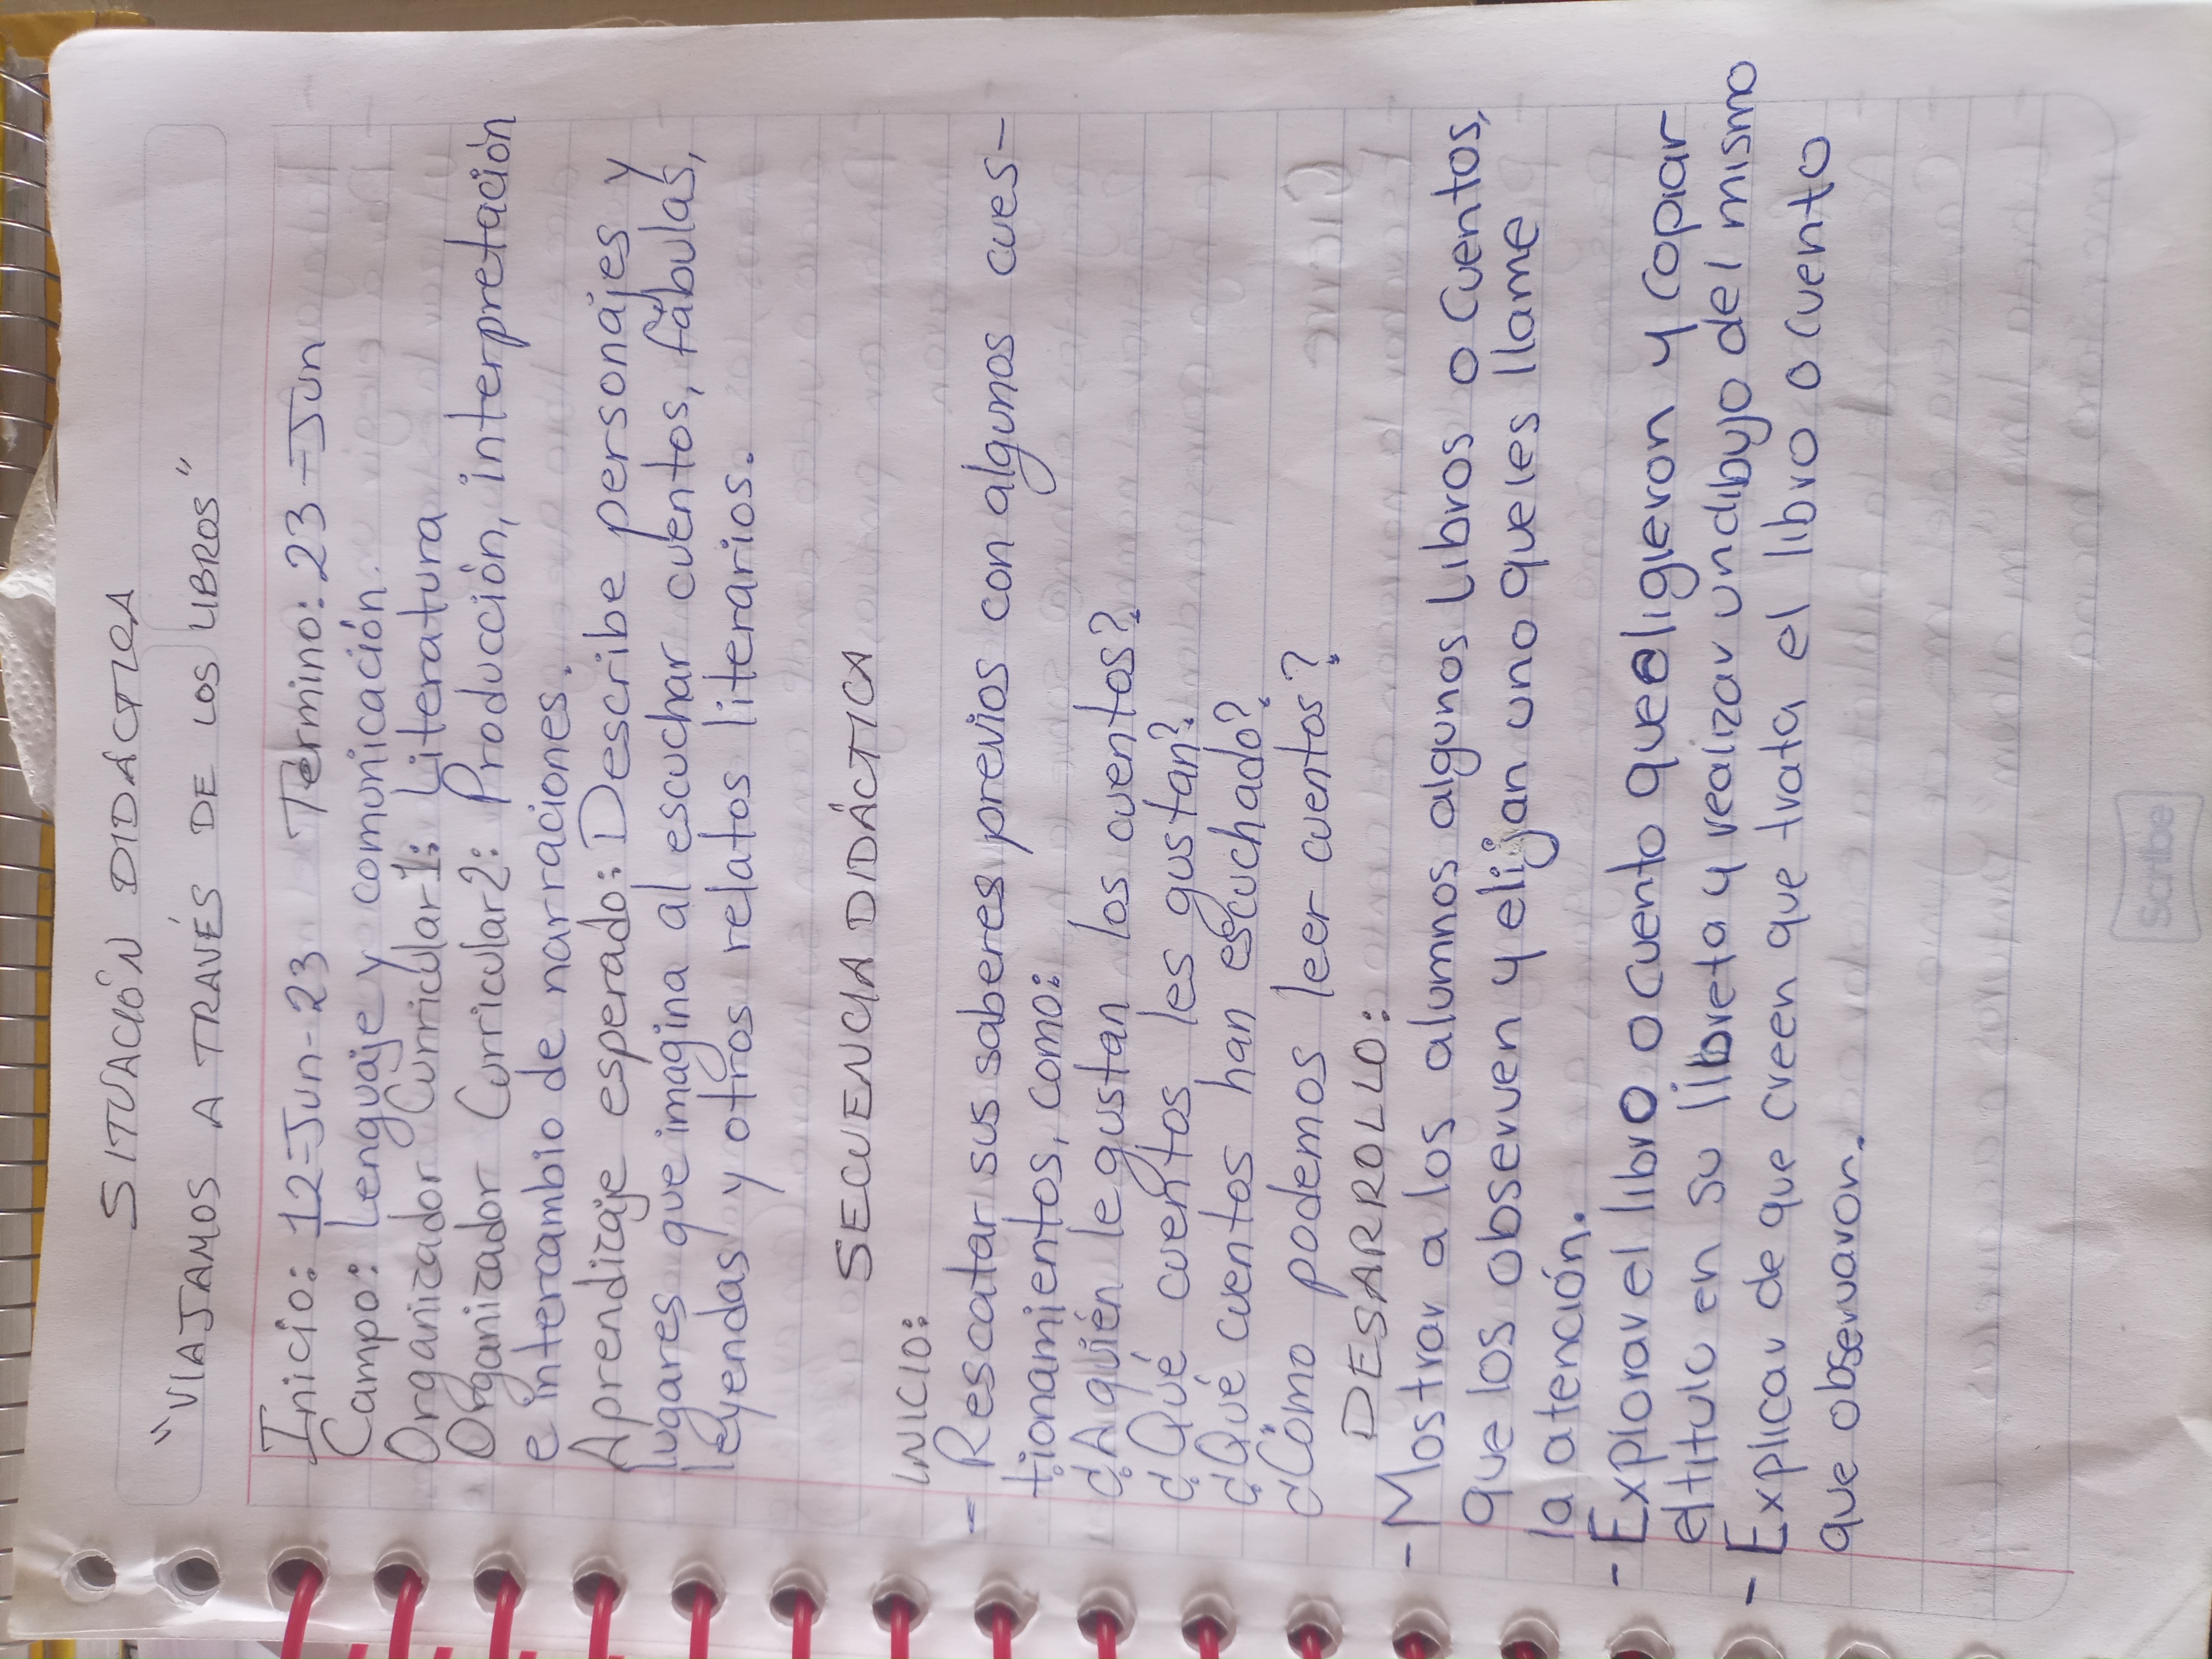 SITUACIÓN DIDACTICA
"VIAJAMOS A TRAVÉS DE LOS LIBROS"
Inicio: 12-Jun-23 Termino: 23-Jun
Campo: Lenguaje y comunicación.
Organizador Curricular 1: Literatura
Organizador Curricular 2: Producción, interpretación
e intercambio de narraciones.
Aprendizaje esperado: Describe personajes y
lugares que imagina al escuchar cuentos, fábulas,
leyendas y otros relatos literarios.
SECUENCIA DIDÁCTICA
INICIO:
- Rescatar sus saberes previos con algunos cues-
tionamientos, como:
¿A quién le gustan los cuentos?
¿Qué cuentos les gustan?
¿Qué cuentos han escuchado?
¿Cómo podemos leer cuentos?
DESARROLLO:
- Mostrar a los alumnos algunos Libros o cuentos,
que los observen y elijan uno que les llame
la atención.
- Explorar el libro o cuento que eligieron y copiar
el titulo en su libreta y realizar un dibujo del mismo
- Explicar de que creen que trata el libro o cuento
que observaron.
Scribe